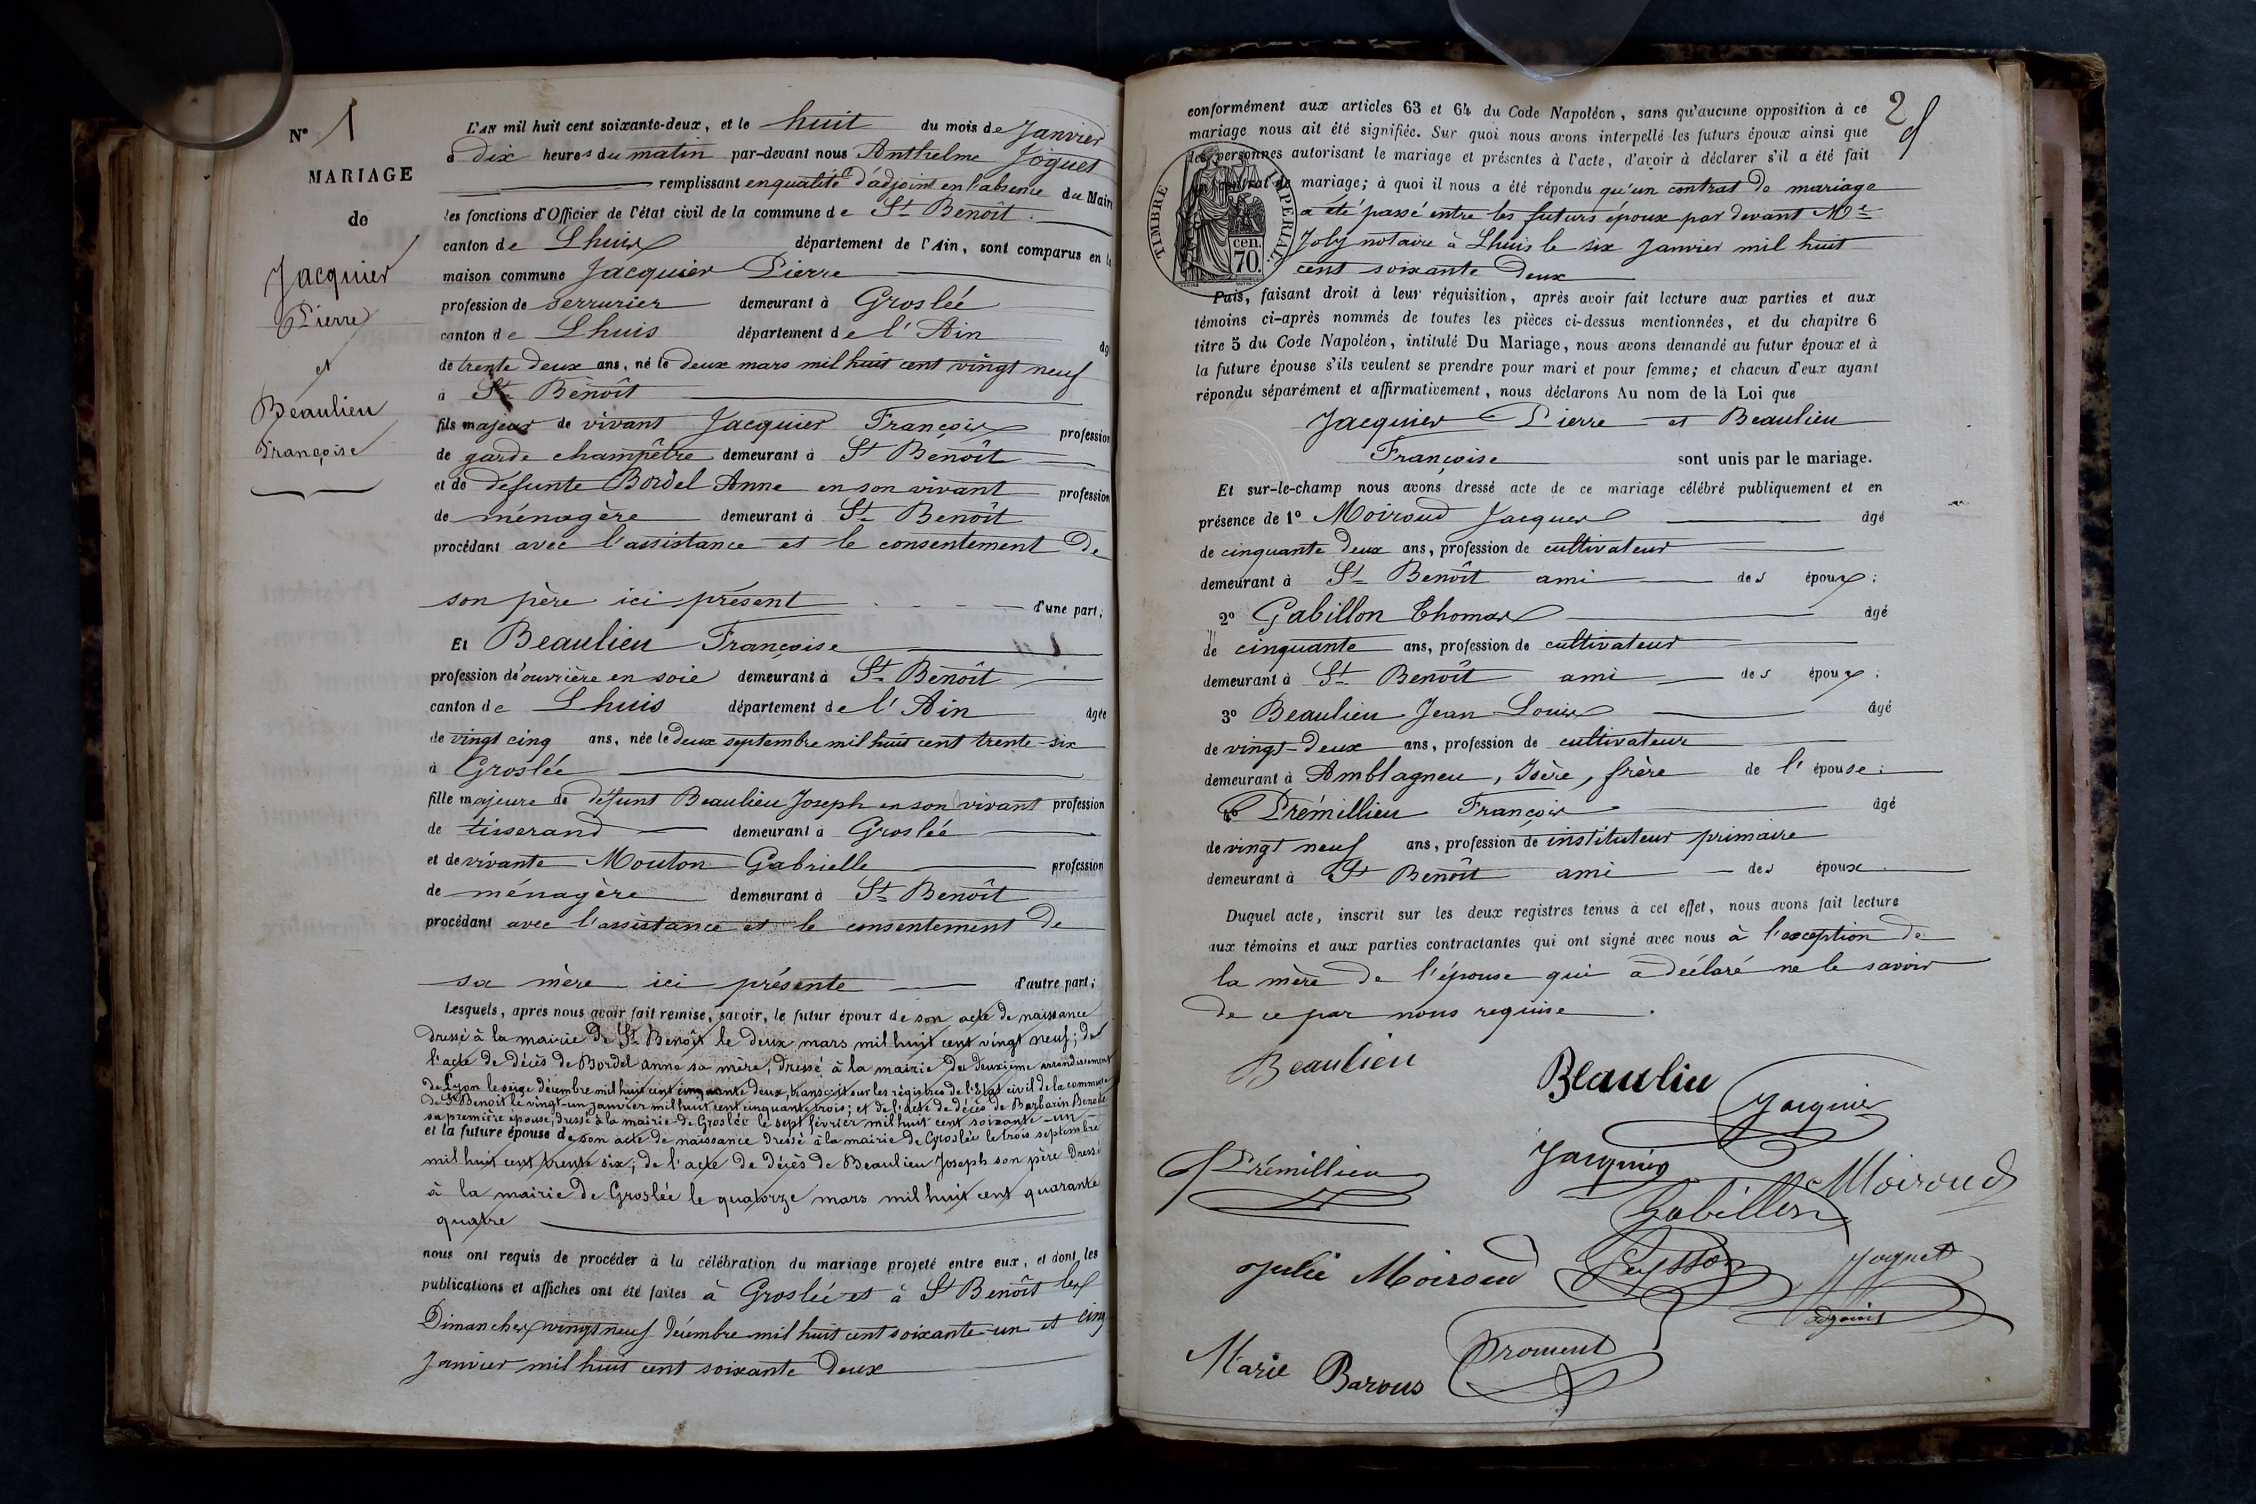 N° 1
MARIAGE
de
Jacquier
Pierre
et
Beaulieu
Françoise
L'AN mil huit cent soixante-deux, et le huit du mois de Janvier
à dix heures du matin par-devant nous Anthelme Joguet
remplissant en qualité d'adjoint en l'absence du Maire
les fonctions d'Officier de l'état civil de la commune de St Benoît
canton de Lhuis département de l'Ain, sont comparus en la
maison commune Jacquier Pierre
profession de serrurier demeurant à Groslée
canton de Lhuis département de l'Ain âgé
de trente deux ans, né le deux mars mil huit cent vingt neuf
à St Benoît
fils majeur de vivant Jacquier François profession
de garde champêtre demeurant à St Benoît
et de défunte Bordel Anne en son vivant profession
de ménagère demeurant à St Benoît
procédant avec l'assistance et le consentement de
son père ici présent d'une part;
Et Beaulieu Françoise
profession d'ouvrière en soie demeurant à St Benoît
canton de Lhuis département de l'Ain âgée
de vingt cinq ans, née le deux septembre mil huit cent trente-six
à Groslée
fille majeure de défunt Beaulieu Joseph en son vivant profession
de tisserand demeurant à Groslée
et de vivante Mouton Gabrielle profession
de ménagère demeurant à St Benoît
procédant avec l'assistance et le consentement de
sa mère ici présente d'autre part;
Lesquels, après nous avoir fait remise, savoir, le futur époux de son acte de naissance
dressé à la mairie de St Benoît le deux mars mil huit cent vingt neuf; de
l'acte de décès de Bordel anne sa mère, dressé à la mairie du deuxième arrondissement
de Lyon le seize décembre mil huit cent cinquante deux, transcrit sur les régistres de l'Etat civil de la commune
de St Benoît le vingt-un janvier mil huit cent cinquante trois; et de l'acte de décès de Barbarin Benoite
sa première épouse, dressé à la mairie de Groslée le sept février mil huit cent soixante-un
et la future épouse de son acte de naissance dressé à la mairie de Groslée le trois septembre
mil huit cent trente six; de l'acte de décès de Beaulieu Joseph son père dressé
à la mairie de Groslée le quatorze mars mil huit cent quarante
quatre
nous ont requis de procéder à la célébration du mariage projeté entre eux, et dont les
publications et affiches ont été faites à Groslée et à St Benoît les
Dimanches vingt neuf décembre mil huit cent soixante-un et cinq
Janvier mil huit cent soixante deux
2
conformément aux articles 63 et 64 du Code Napoléon, sans qu'aucune opposition à ce
mariage nous ait été signifiée. Sur quoi nous avons interpellé les futurs époux ainsi que
les personnes autorisant le mariage et présentes à l'acte, d'avoir à déclarer s'il a été fait
un contrat de mariage; à quoi il nous a été répondu qu'un contrat de mariage
a été passé entre les futurs époux par devant Me
Joly notaire à Lhuis le six Janvier mil huit
cent soixante deux
TIMBRE IMPERIAL
70 cen.
Puis, faisant droit à leur réquisition, après avoir fait lecture aux parties et aux
témoins ci-après nommés de toutes les pièces ci-dessus mentionnées, et du chapitre 6
titre 5 du Code Napoléon, intitulé Du Mariage, nous avons demandé au futur époux et à
la future épouse s'ils veulent se prendre pour mari et pour femme; et chacun d'eux ayant
répondu séparément et affirmativement, nous déclarons Au nom de la Loi que
Jacquier Pierre et Beaulieu
Françoise sont unis par le mariage.
Et sur-le-champ nous avons dressé acte de ce mariage célébré publiquement et en
présence de 1° Moiroud Jacques âgé
de cinquante deux ans, profession de cultivateur
demeurant à St Benoît ami des époux;
2° Gabillon Thomas âgé
de cinquante ans, profession de cultivateur
demeurant à St Benoît ami des époux;
3° Beaulieu Jean Louis âgé
de vingt-deux ans, profession de cultivateur
demeurant à Amblagneu, Isère, frère de l'épouse;
4° Prémillieu François âgé
de vingt neuf ans, profession de instituteur primaire
demeurant à St Benoît ami des époux
Duquel acte, inscrit sur les deux registres tenus à cet effet, nous avons fait lecture
aux témoins et aux parties contractantes qui ont signé avec nous à l'exception de
la mère de l'épouse qui a déclaré ne le savoir
de ce par nous requise.
Beaulieu Beauliu
Jacquier
Prémillieu Jacquier Moiroud
Gabillon
Julie Moiroud Peysson Joguet
adjoint
Marie Barous Froment